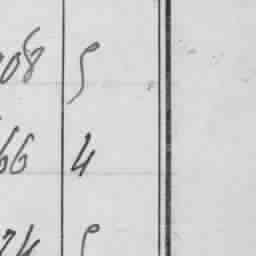 08 5
66 4
24